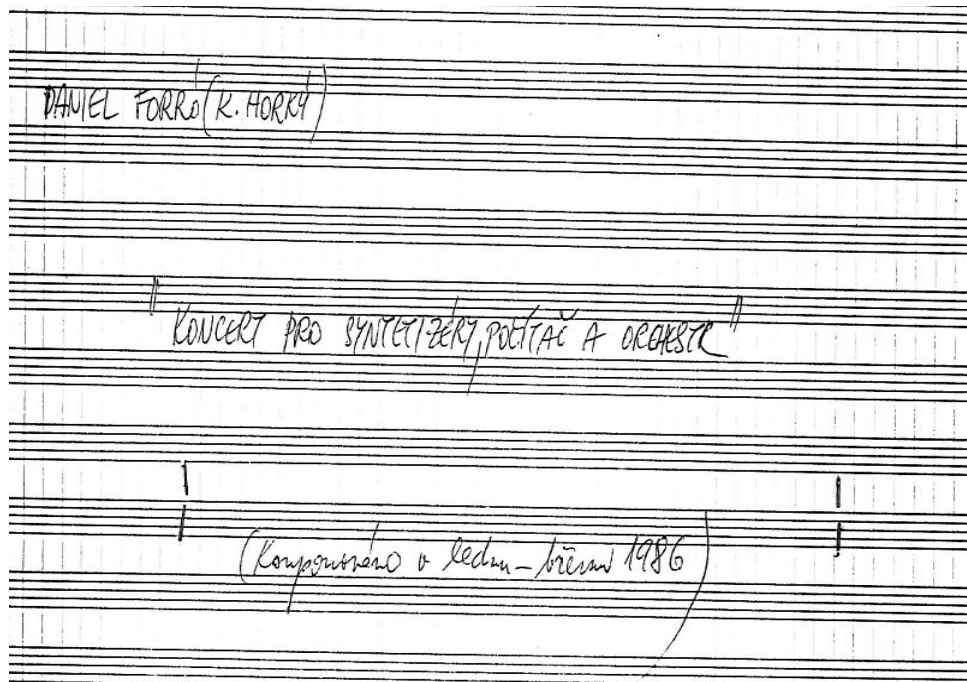 DANIEL FORRÓ (K. HORKÝ)
"KONCERT PRO SYNTETIZÉRY, POČÍTAČ A ORCHESTR"
(Komponováno v lednu – březnu 1986)